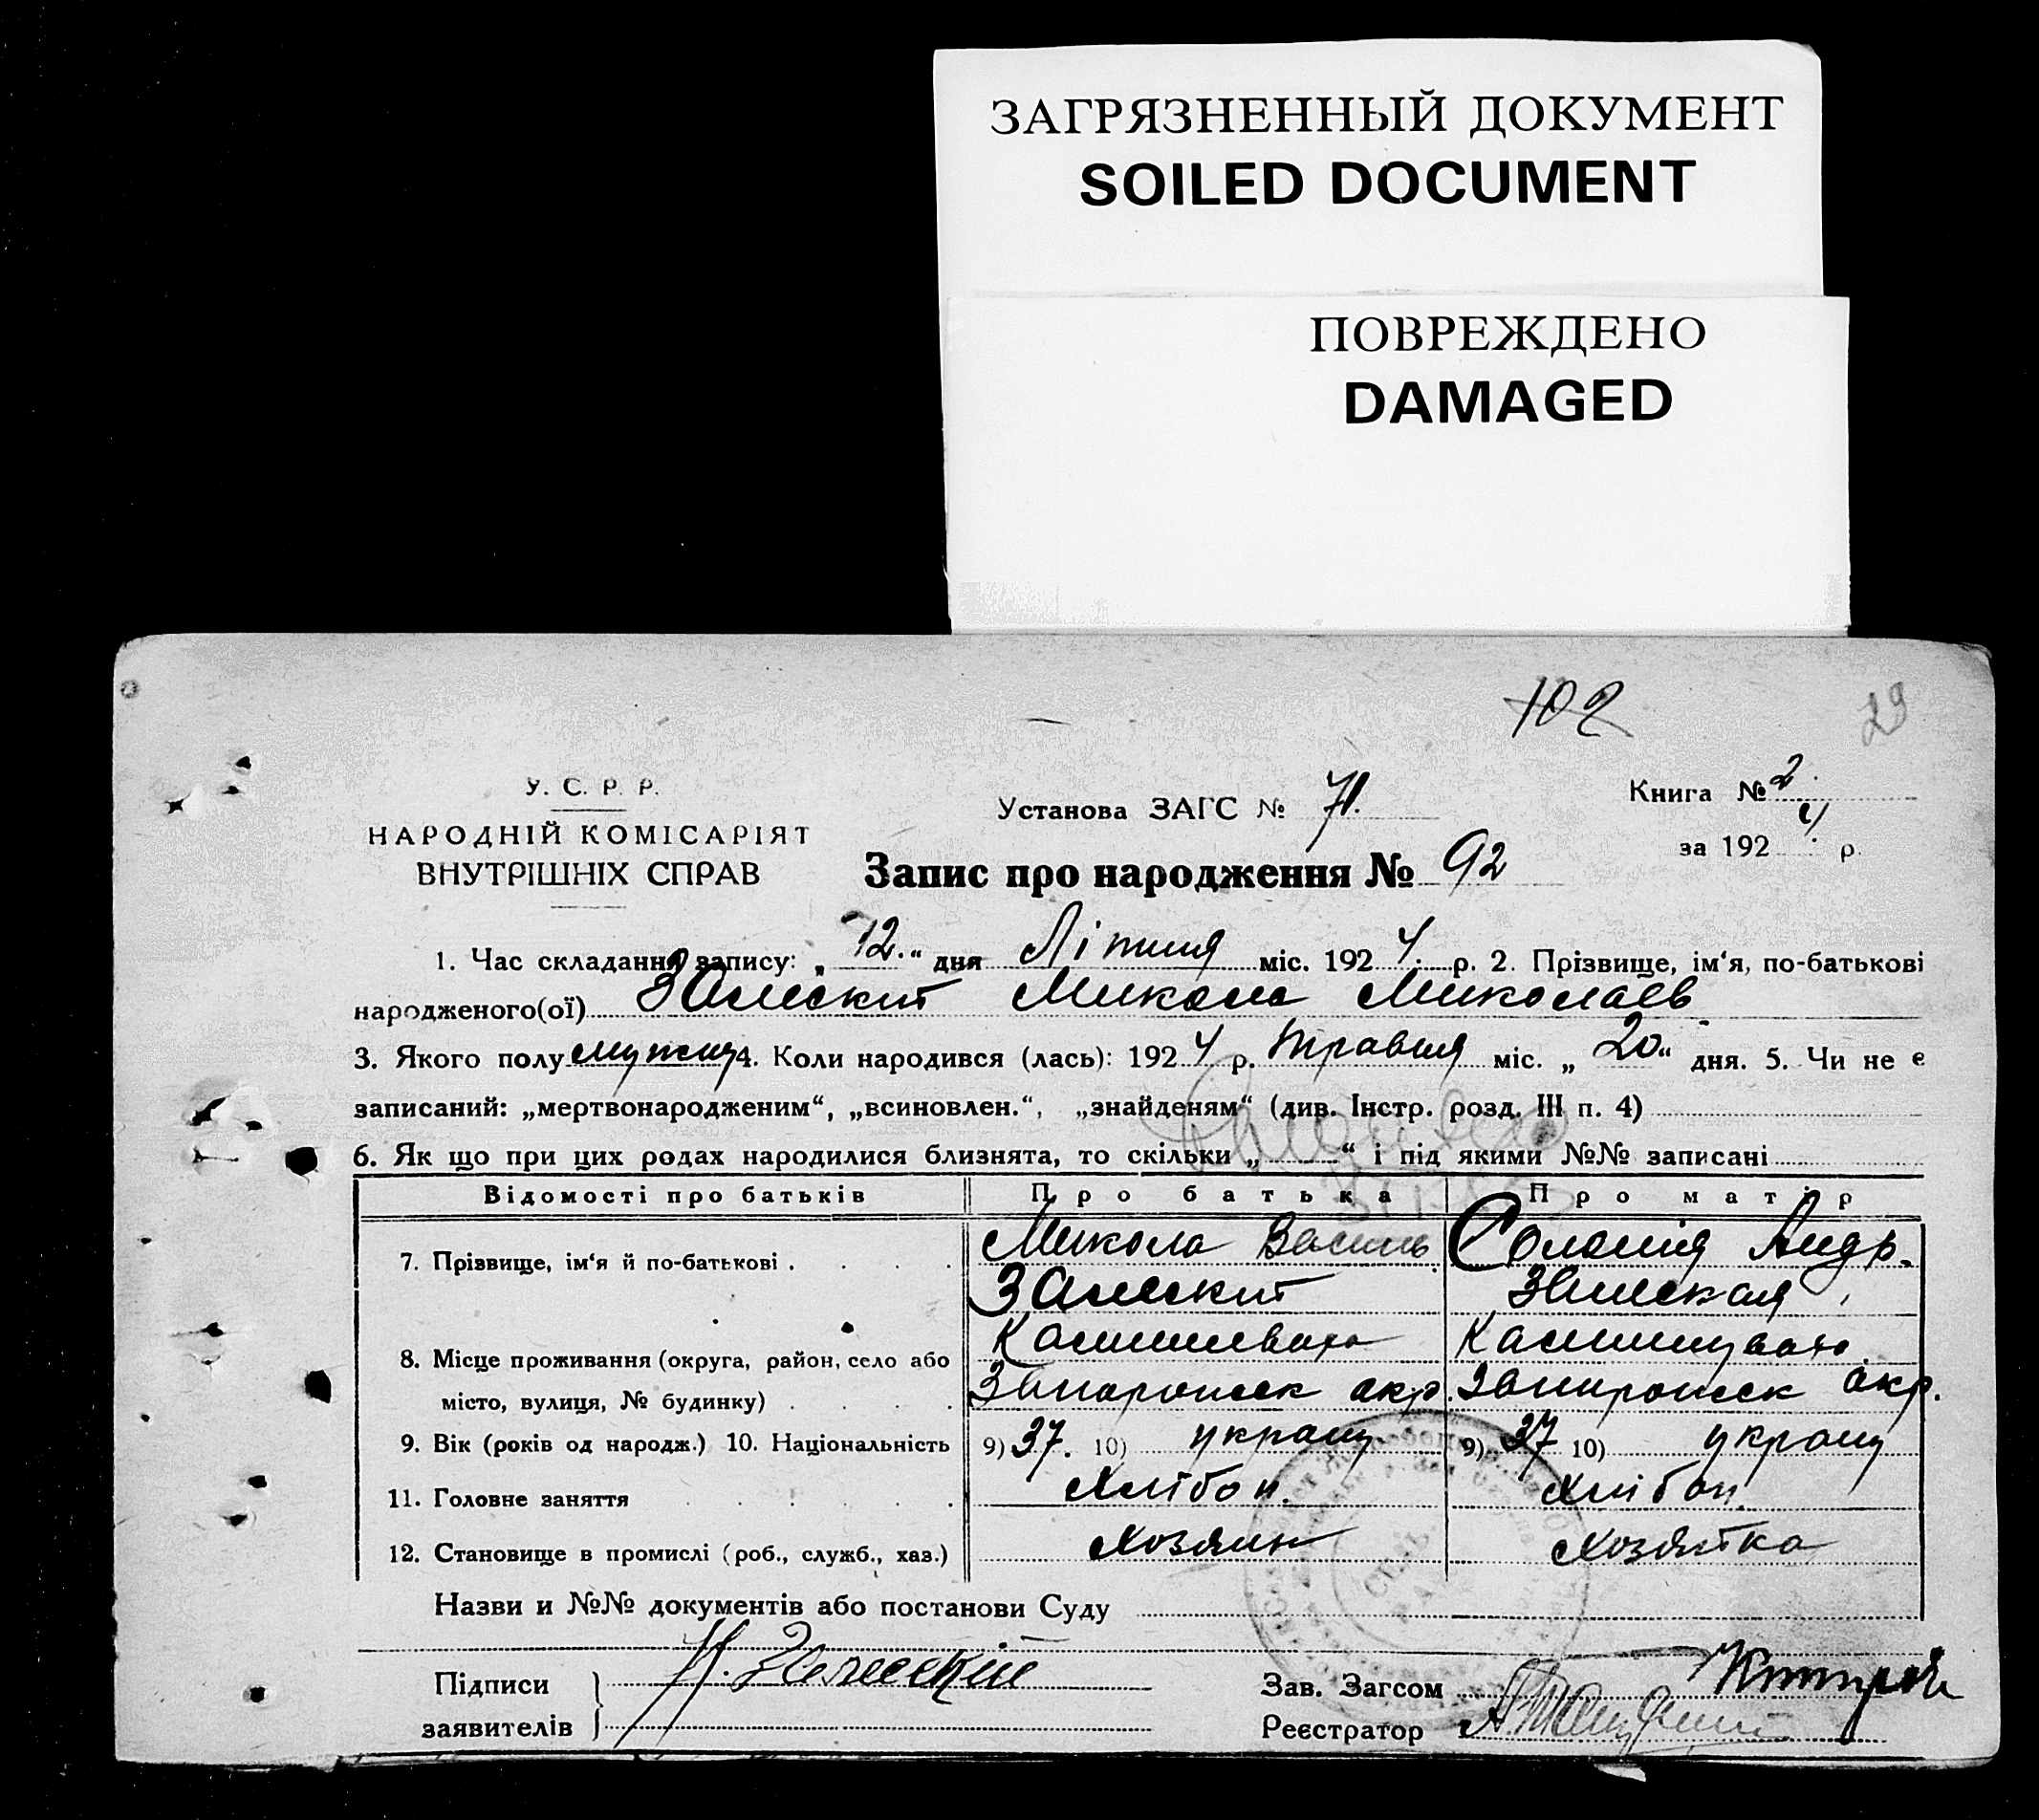 ЗАГРЯЗНЕННЫЙ ДОКУМЕНТ
SOILED DOCUMENT
ПОВРЕЖДЕНО
DAMAGED
102
29
У. С. Р. Р.
Установа ЗАГС № 71.
Книга № 2
НАРОДНІЙ КОМІСАРІЯТ
за 1924 р.
ВНУТРІШНІХ СПРАВ
Запис про народження № 92
1. Час складання запису: „12.“ дня Ліпня міс. 1924. р. 2. Прізвище, ім‘я, по-батькові
народженого(ої) Залескит Микола Миколаєв
3. Якого полу мужчу 4. Коли народився (лась): 1924 р. Травня міс. „20“ дня. 5. Чи не є
записаний: „мертвонародженим“, „всиновлен.“, „знайденям“ (див. Інстр. розд. III п. 4)
6. Як що при цих родах народилися близнята, то скільки „ “ і під якими №№ записані
Відомості про батьків Про батька Про матір
7. Прізвище, ім‘я й по-батькові . . . . Микола Василь Соломія Андр.
Залескит Залеская
8. Місце проживання (округа, район, село або Камишеваха Камишуваха
місто, вулиця, № будинку) . . . . Запорожск окр. Запорожск окр.
9. Вік (років од народж.) 10. Національність 9) 37. 10) украин 9) 37 10) украин
11. Головне заняття . . . . . Хлібоп. Хлібоп.
12. Становище в промислі (роб., служб., хаз.) Хозяин Хозяйка
Назви и №№ документів або постанови Суду
Підписи Н. Залеский Зав. Загсом
заявителів Реєстратор